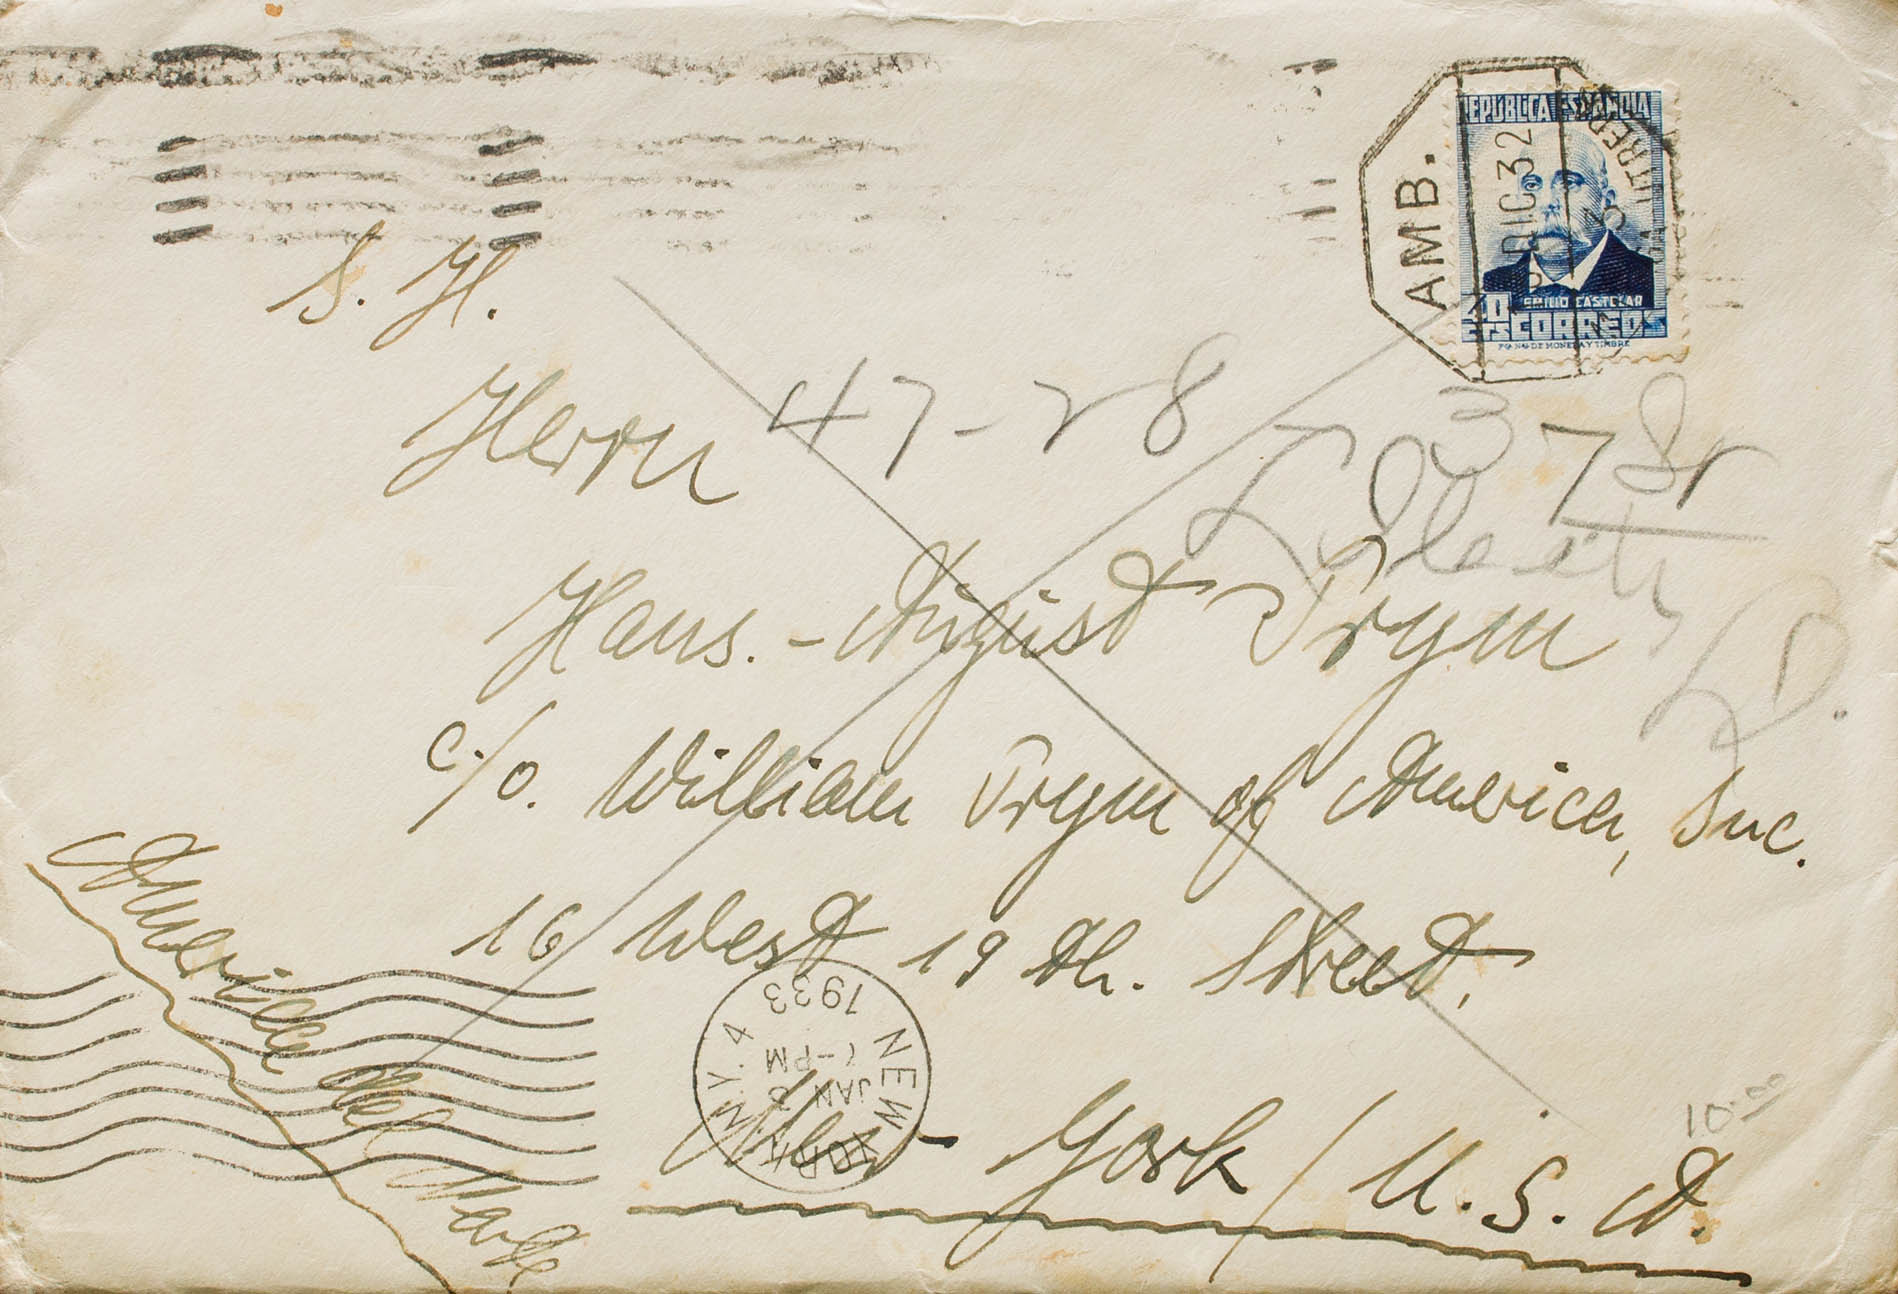 REPÚBLICA ESPAÑOLA
AMB.
DIC 32
UTRERA
EMILIO CASTELAR
40
CTS CORREOS
F.ca N.al DE MONEDA Y TIMBRE
S. H.
Herrn
47-28
37 St
Hans.-August Prym
c./o. William Prym of America, Inc.
16 West 19 th. Street.
New-York / U.S.A.
America del Norte
NEW YORK N.Y. 4
JAN 3
7-PM
1933
10.00